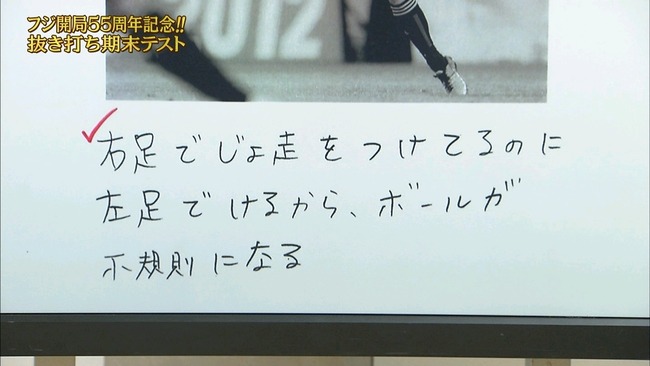 フジ開局55周年記念!!
抜き打ち期末テスト
2012
右足でじょ走をつけてるのに
左足でけるから、ボールが
不規則になる